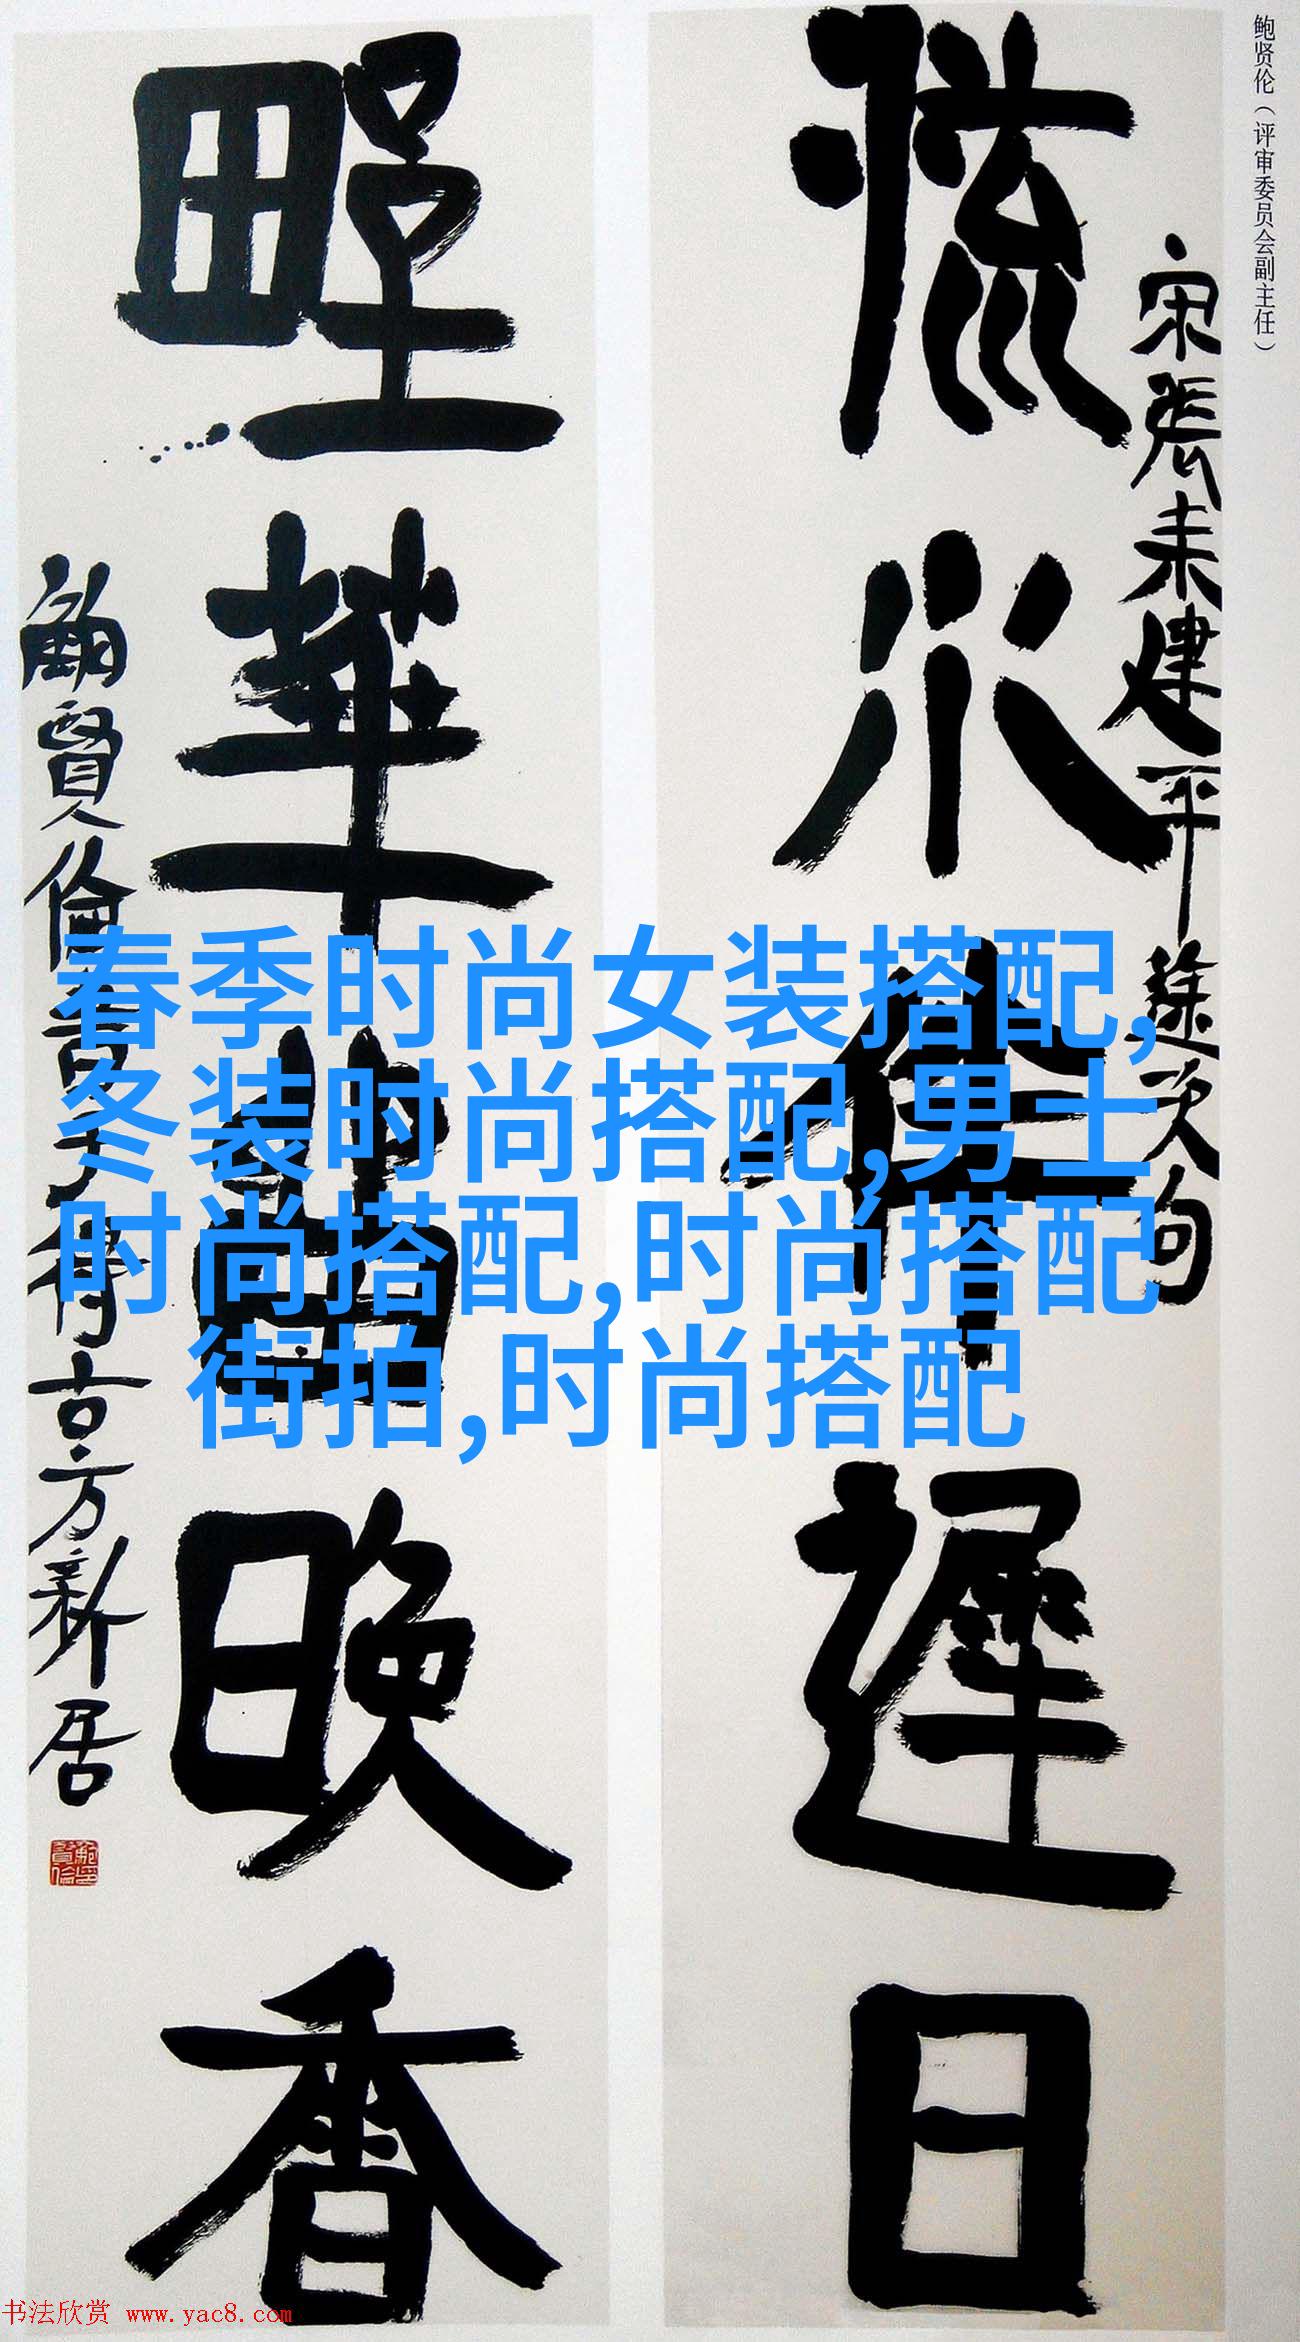 鲍贤伦（评审委员会副主任）
宋張耒建平途次句
流水佳遲日
野華留晚香
鮑賢倫書于得古方新居
春季时尚女装搭配,
冬装时尚搭配,男士
时尚搭配,时尚搭配
街拍,时尚搭配
书法欣赏 www.yac8.com